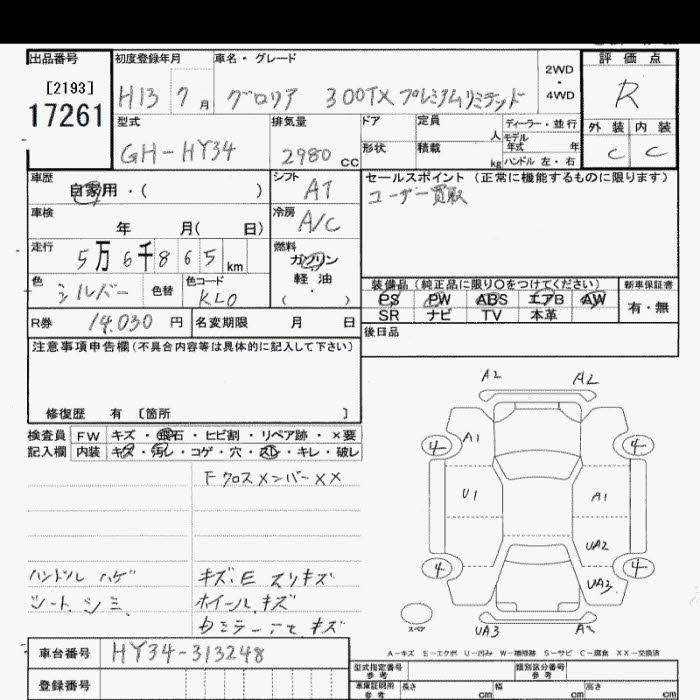 出品番号 初度登録年月 車名・グレード 評価点
[2193] 2WD ・ 4WD
17261 H13 7月 グロリア 300TX プレミアムリミテッド R
型式 排気量 ドア 定員 人 ディーラー・並行 外装 内装
モデル年式 年
GH-HY34 2980 CC 形状 積載 kg ハンドル 左・右 C C
車歴 自家用・( ) シフト AT セールスポイント (正常に機能するものに限ります)
ユーザー買取
車検 年 月( 日) 冷房 A/C
走行 5万6千865km 燃料 ガソリン
軽油
( ・ )
色 シルバー 色替 色コード KL0 装備品 (純正品に限り○をつけてください) 新車保証書
PS PW ABS エアB AW 有・無
SR ナビ TV 本革
R券 14,030円 名変期限 月 日 後日品
注意事項申告欄(不具合内容等は具体的に記入して下さい)
修復歴 有 〔箇所 〕
検査員 FW キズ・飛石・ヒビ割・リペア跡・×要
記入欄 内装 キズ・汚レ・コゲ・穴・スレ・キレ・破レ
FクロスメンバーXX
ハンドル ハゲ キズ、E スリキズ
シート、シミ ホイール、キズ
A2 A2
4 A1 4
U1 A1
UA2
4 UA3 4
スペア
UA3 A2
A-キズ E-エクボ U-凹み W-補修跡 S-サビ C-腐食 XX-交換済
車台番号 HY34-313248
登録番号
型式指定番号 参考 類別区分番号 参考
車庫証明用 参考 長さ cm 幅 cm 高さ cm